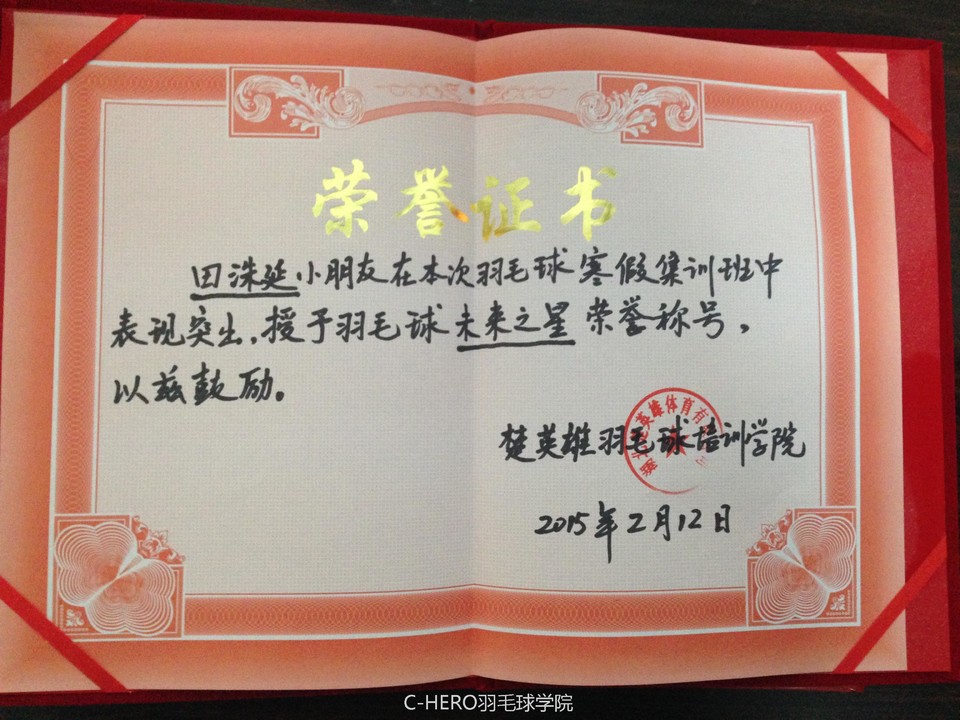 荣誉证书
田洙延小朋友在本次羽毛球寒假集训班中
表现突出,授于羽毛球未来之星荣誉称号,
以兹鼓励。
楚英雄体育有
楚英雄羽毛球培训学院
2015年2月12日
C-HERO羽毛球学院